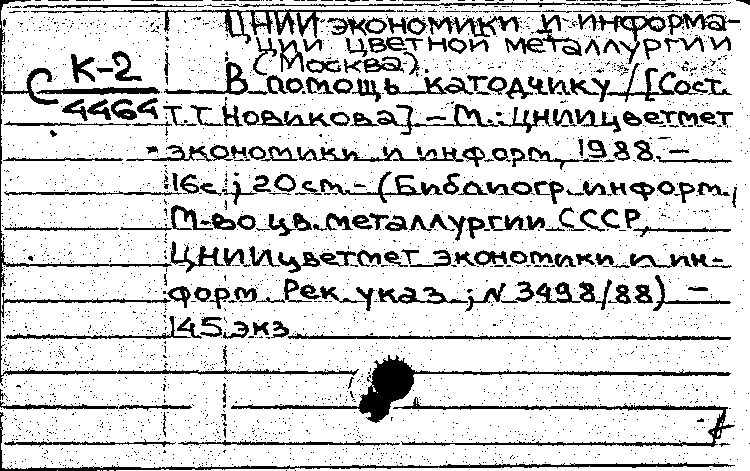 ЦНИИ экономики и информа-
ции цветной металлургии
(Москва).
С К-2
4464
В помощь катодчику / [Сост.
Т.Т. Новикова] – М.: ЦНИИцветмет
экономики и информ., 1988. –
16с.; 20см. – (Библиогр. информ.,
М-во цв. металлургии СССР,
ЦНИИцветмет экономики и ин-
форм. Рек. указ.; N 3498/88) –
145 экз.